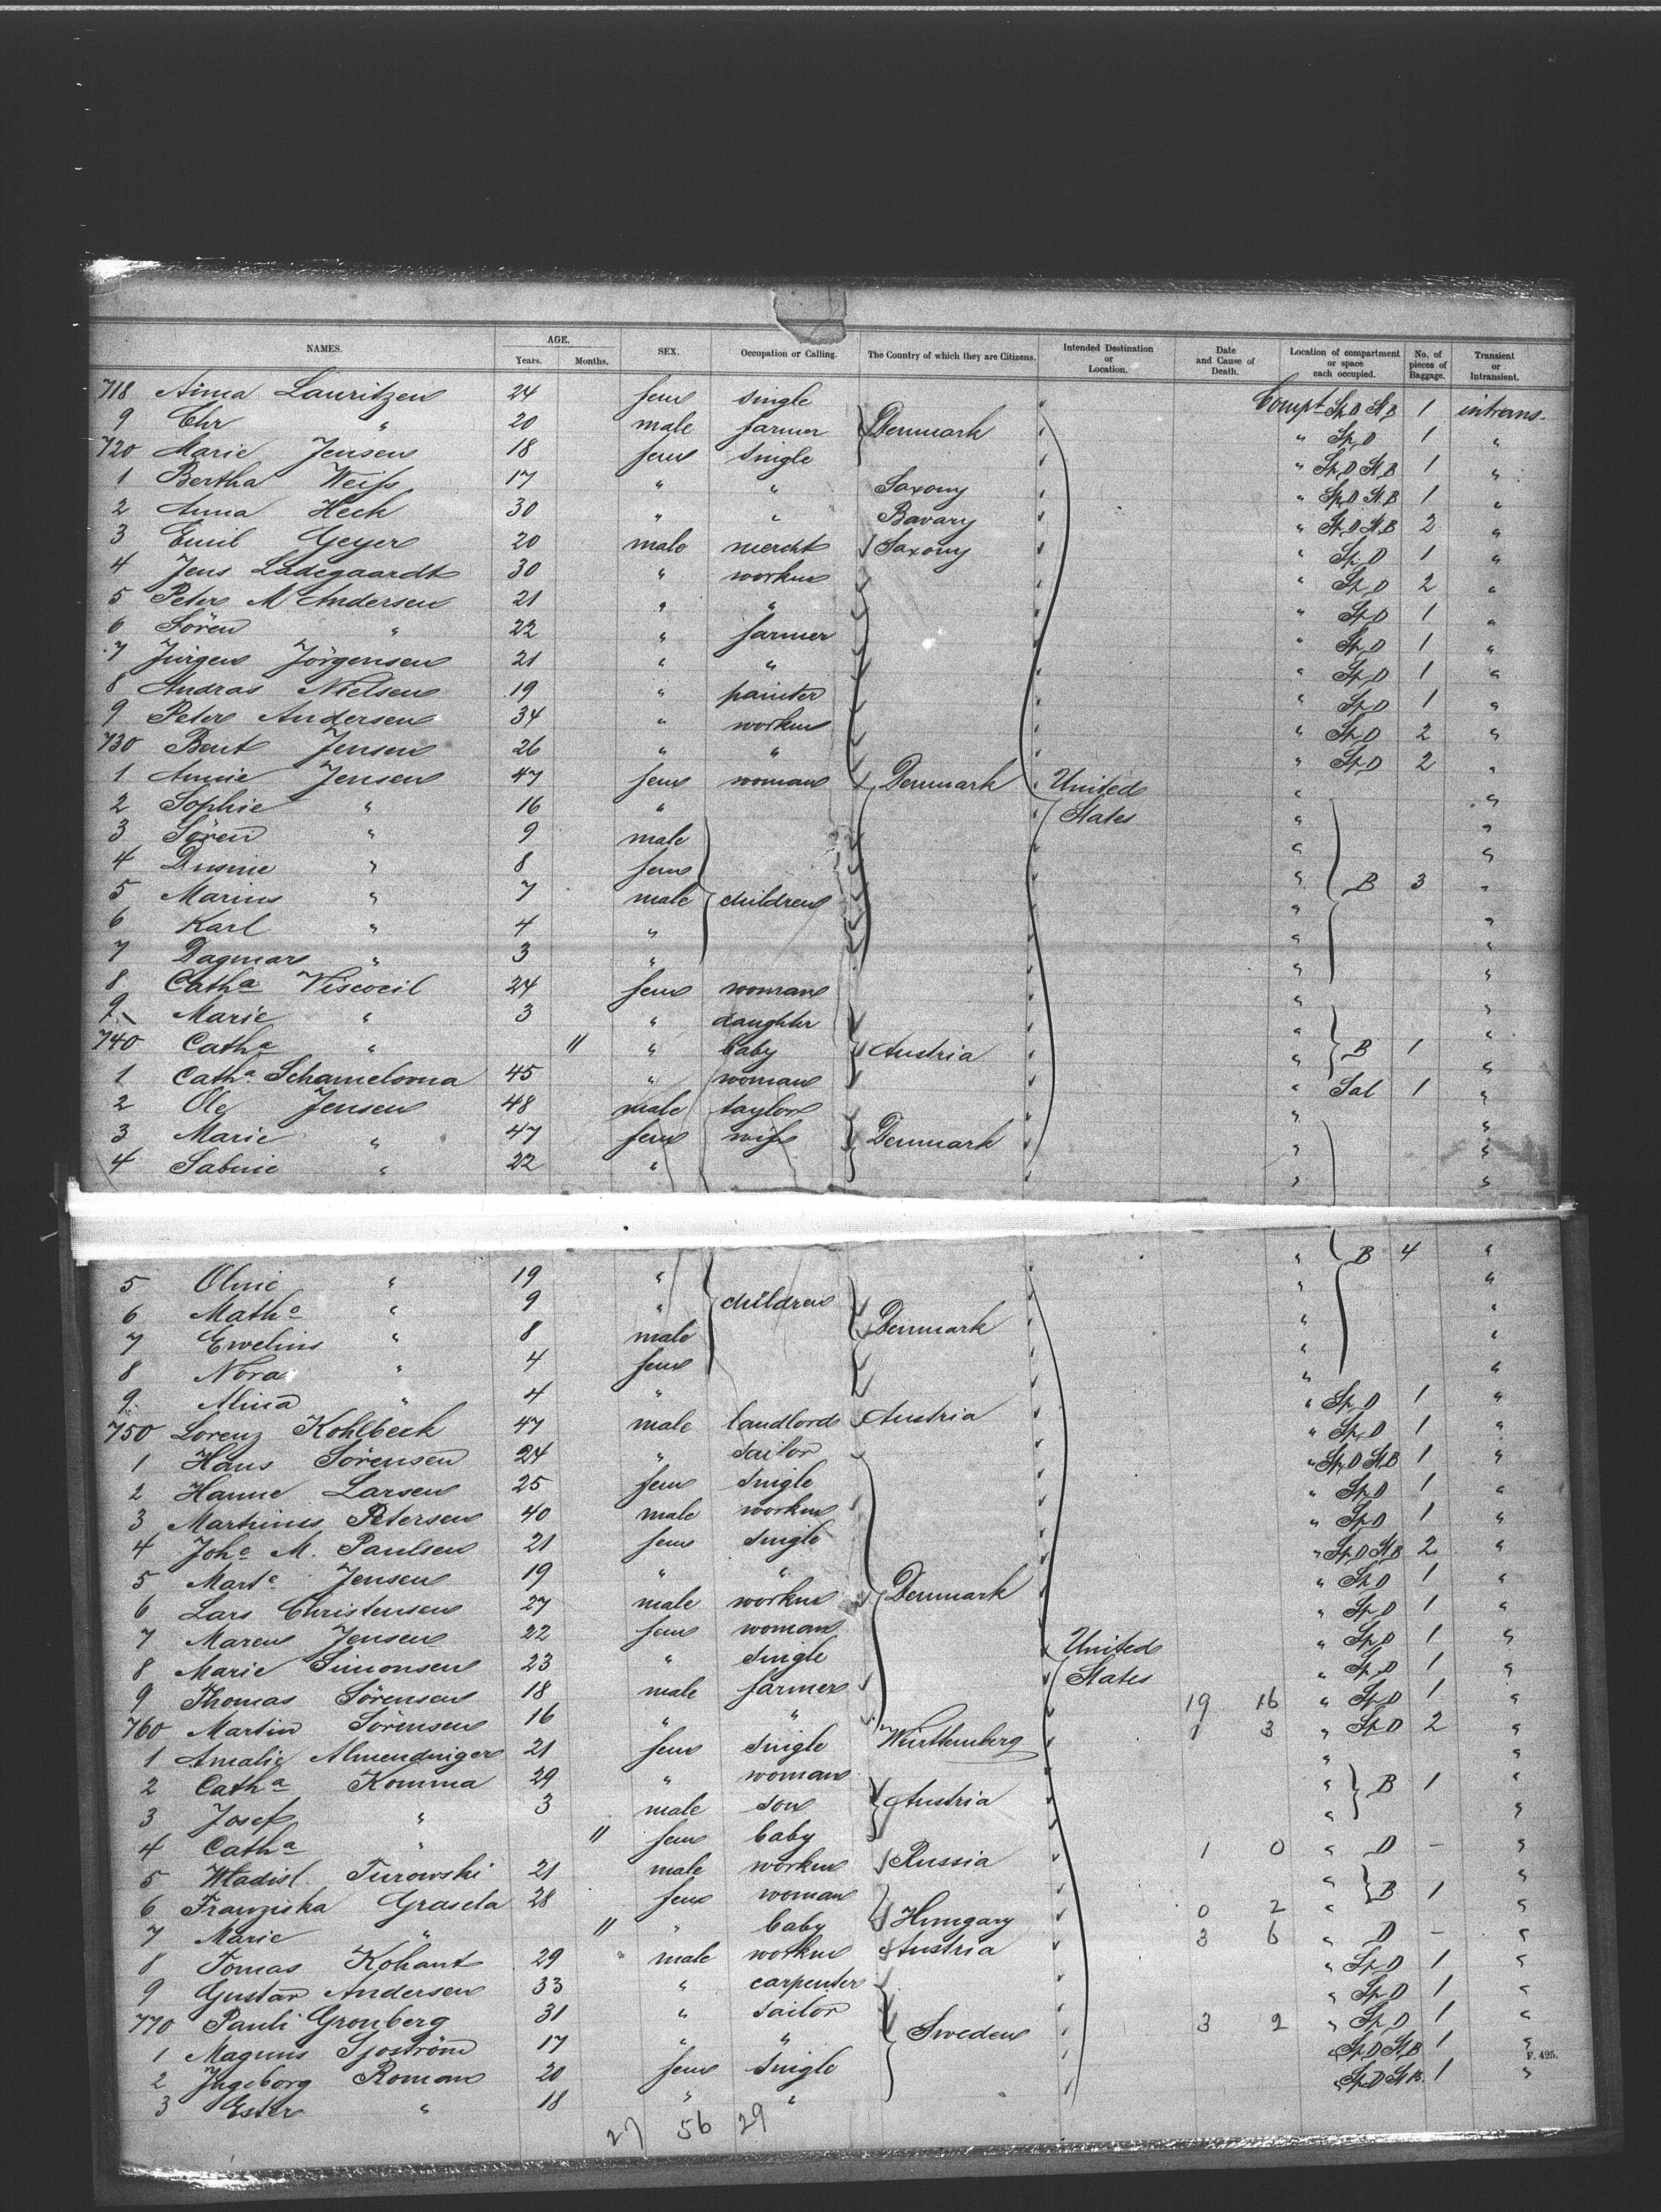 NAMES. AGE. Years. Months. SEX. Occupation or Calling. The Country of which they are Citizens. Intended Destination or Location. Date and Cause of Death. Location of compartment or space each occupied. No. of pieces of Baggage. Transient or Intransient.
718 Anna Lauritzen 24 fem single Compt Sp D St B 1 intrans.
9 Chr " 20 male farmer Denmark " Sp D 1 "
720 Marie Jensen 18 fem single " Sp D St B 1 "
1 Bertha Weiss 17 " " Saxony " Sp D St B 1 "
2 Anna Heck 30 " " Bavary " Sp D St B 2 "
3 Emil Geyer 20 male mercht Saxony " Sp D 1 "
4 Jens Ladegaardt 30 " workm " Sp D 2 "
5 Peter M Andersen 21 " " " Sp D 1 "
6 Sören " 22 " farmer " Sp D 1 "
7 Jürgen Jörgensen 21 " " " Sp D 1 "
8 Andras Nielsen 19 " painter " Sp D 1 "
9 Peter Andersen 34 " workm " Sp D 2 "
730 Bent Jensen 26 " " " Sp D 2 "
1 Annie Jensen 47 fem woman Denmark United " "
2 Sophie " 16 " States " "
3 Sören " 9 male " "
4 " 8 fem " "
5 Marius " 7 male children " B 3 "
6 Karl " 4 " " "
7 Dagmar " 3 " " "
8 Catha 24 fem woman " "
9 Marie " 3 " daughter " "
740 Catha " 11 " baby Austria " B 1 "
1 Catha Schamelovna 45 " woman " Sal 1 "
2 Ole Jensen 48 male taylor " "
3 Marie " 47 fem wife Denmark " "
4 Sabine " 22 " " "
5 " 19 " " B 4 "
6 Matha " 9 " children " "
7 Ewelius " 8 male Denmark " "
8 Nora " 4 fem " "
9 Alma " 4 " " "
750 Lorenz Kohlbeck 47 male landlord Austria " Sp D 1 "
1 Hans Sörensen 24 " sailor " Sp D 1 "
2 Hanne Larsen 25 fem single " Sp D St B 1 "
3 Martinus Petersen 40 male workm " Sp D 1 "
4 Joha M. Paulsen 21 fem single " Sp D 1 "
5 Marte Jensen 19 " " " Sp D St B 2 "
6 Lars Christensen 27 male workm Denmark " Sp D 1 "
7 Maren Jensen 22 fem woman " Sp D 1 "
8 Marie Simonsen 23 " single United " Sp D 1 "
9 Thomas Sörensen 18 male farmer States " Sp D 1 "
760 Martin Sörensen 16 " " 19 16 " Sp D 1 "
1 Amalie Almendinger 21 fem single Württemberg 1 3 " Sp D 2 "
2 Catha Komma 29 " woman " "
3 Josef " 3 male son Austria " B 1 "
4 Catha " 11 fem baby " "
5 Wladisl. Turowski 21 male workm Russia 1 0 " D - "
6 Franziska Grasela 28 fem woman " B 1 "
7 Marie " 11 " baby Hungary 0 2 " "
8 Tomas Kohant 29 male workm Austria 3 6 " D - "
9 Gustav Andersen 33 " carpenter " Sp D 1 "
770 Pauli Gronberg 31 " sailor " Sp D 1 "
1 Magnus Sjoström 17 " " Sweden 3 2 " Sp D 1 "
2 Ingeborg Roman 20 fem single " Sp D St B 1 "
3 Ester " 18 " " " Sp D St B 1 "
F. 425.
27 56 29